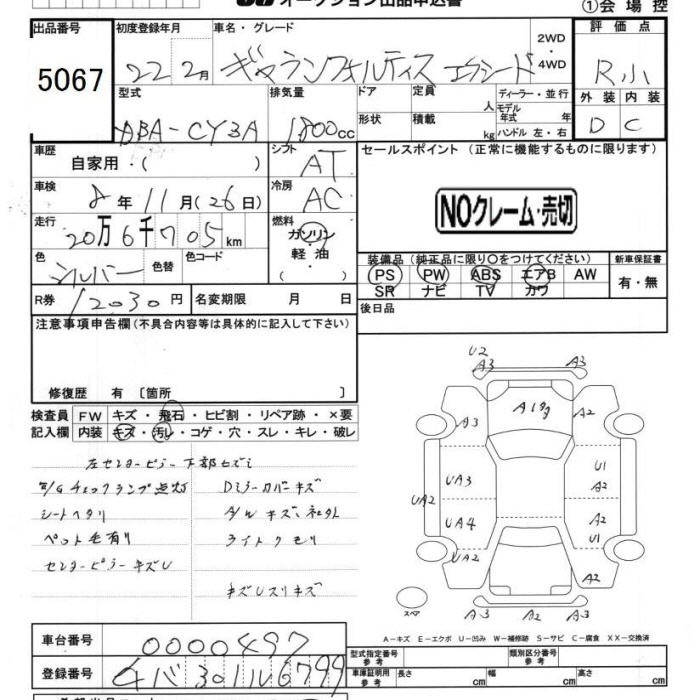 オークション出品申込書
①会場控
出品番号 初度登録年月 車名・グレード 評価点
5067 22 2月 ギャランフォルティス エクシード 2WD・4WD R小
型式 排気量 ドア 定員 人 ディーラー・並行 外装 内装
モデル年式 年
ABA-CY3A 1800cc 形状 積載 kg ハンドル 左・右 D C
車歴 自家用・( ) シフト AT セールスポイント (正常に機能するものに限ります)
車検 8年11月(26日) 冷房 AC
NOクレーム・売切
走行 20万6千705km 燃料 ガソリン・軽油
装備品(純正品に限り○をつけてください) 新車保証書
色 シルバー 色替 色コード
PS PW ABS エアB AW 有・無
SR ナビ TV カワ
R券 12030円 名変期限 月 日
後日品
注意事項申告欄(不具合内容等は具体的に記入して下さい)
修復歴 有 〔箇所 〕
検査員 FW キズ・飛石・ヒビ割・リペア跡・×要
記入欄 内装 キズ・汚レ・コゲ・穴・スレ・キレ・破レ
左センターピラー下部ヒズミ
E/Gチェックランプ点灯 Dミラーカバーキズ
シートヘタリ A/Wキズ
ペット毛有り ライトクモリ
センターピラーキズU
キズUスリキズ
U2
A3 A3
A1 A2
A3
UA3 U1
A2
UA2
UA4 A2
U1
UA2 A2
スペア
A3 A2 A3
A-キズ E-エクボ U-凹み W-補修跡 S-サビ C-腐食 XX-交換済
車台番号 0000497
型式指定番号 参考 類別区分番号 参考
登録番号 301 ル 6799
車庫証明用 参考 長さ cm 幅 cm 高さ cm